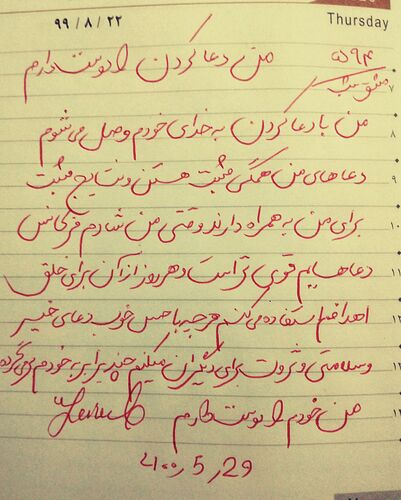 Thursday
۹۹ / ۸ / ۲۲
۵۹۴
مشق شب
من دعا کردن را دوست دارم
من با دعا کردن به خدای خودم وصل می شوم
دعاهای من همگی مثبت هستن و نتایج مثبت
برای من به همراه دارند وقتی من شادم فرکانس
دعاهایم قوی تر است و هر روز از آن برای خلق
اهدافم استفاده می کنم هرچه با حس خوب دعای خیر
و سلامتی و ثروت برای دیگران میکنم چند برابر به خودم برمی گرده
من خودم را دوست دارم
۴۰۰٫5٫29
۷
۸
۹
۱۰
۱۱
۱۲